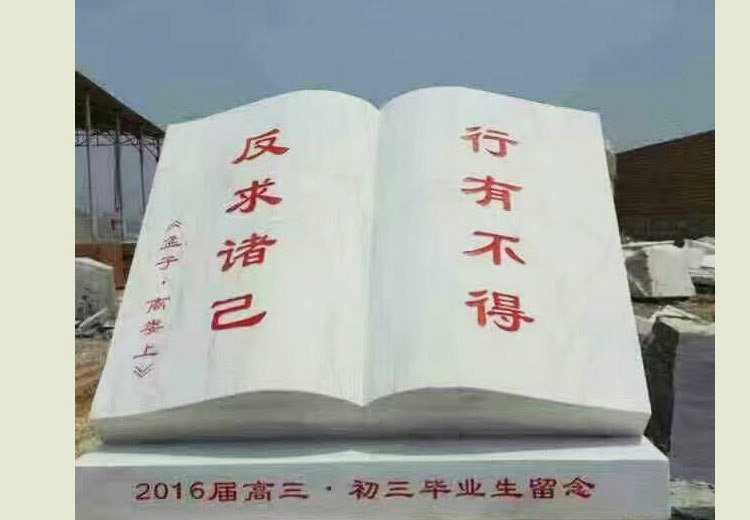 行有不得
反求诸己
《孟子·离娄上》
2016届高三·初三毕业生留念